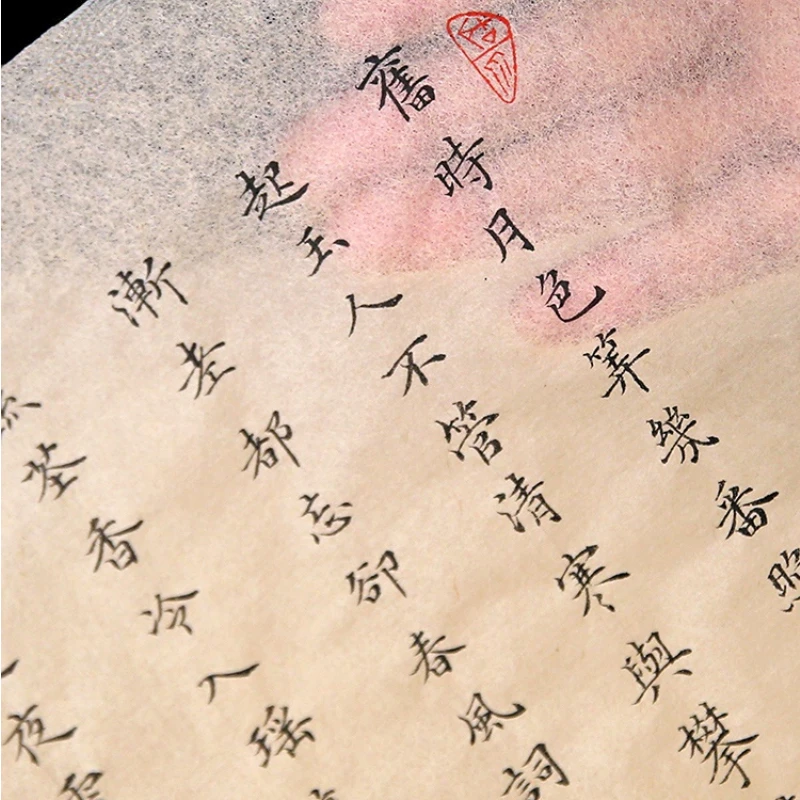 舊時月色筭幾番照
起玉人不管清寒與攀
漸老都忘卻春風詞
香冷入瑶
夜雪